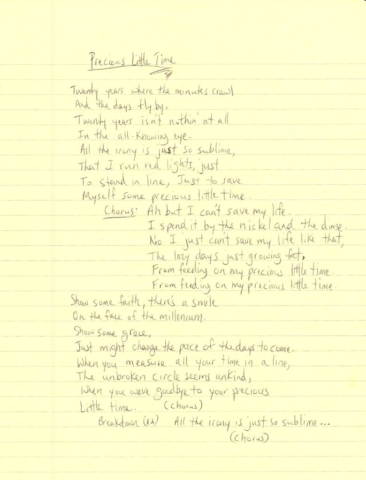 Precious Little Time
Twenty years where the minutes crawl
And the days fly by.
Twenty years isn't nothin' at all
In the all-knowing eye.
All the irony is just so sublime,
That I run red lights, just
To stand in line, Just to save
Myself some precious little time.
Chorus: Ah but I can't save my life.
I spend it by the nickel and the dime.
No I just can't save my life like that,
The lazy days just growing fat,
From feeding on my precious little time.
From feeding on my precious little time.
Show some faith, there's a smile
On the face of the millenium.
Show some grace,
Just might change the pace of the days to come.
When you measure all your time in a line,
The unbroken circle seems unkind,
When you wave goodbye to your precious
Little time. (chorus)
Breakdown All the irony is just so sublime...
(chorus)